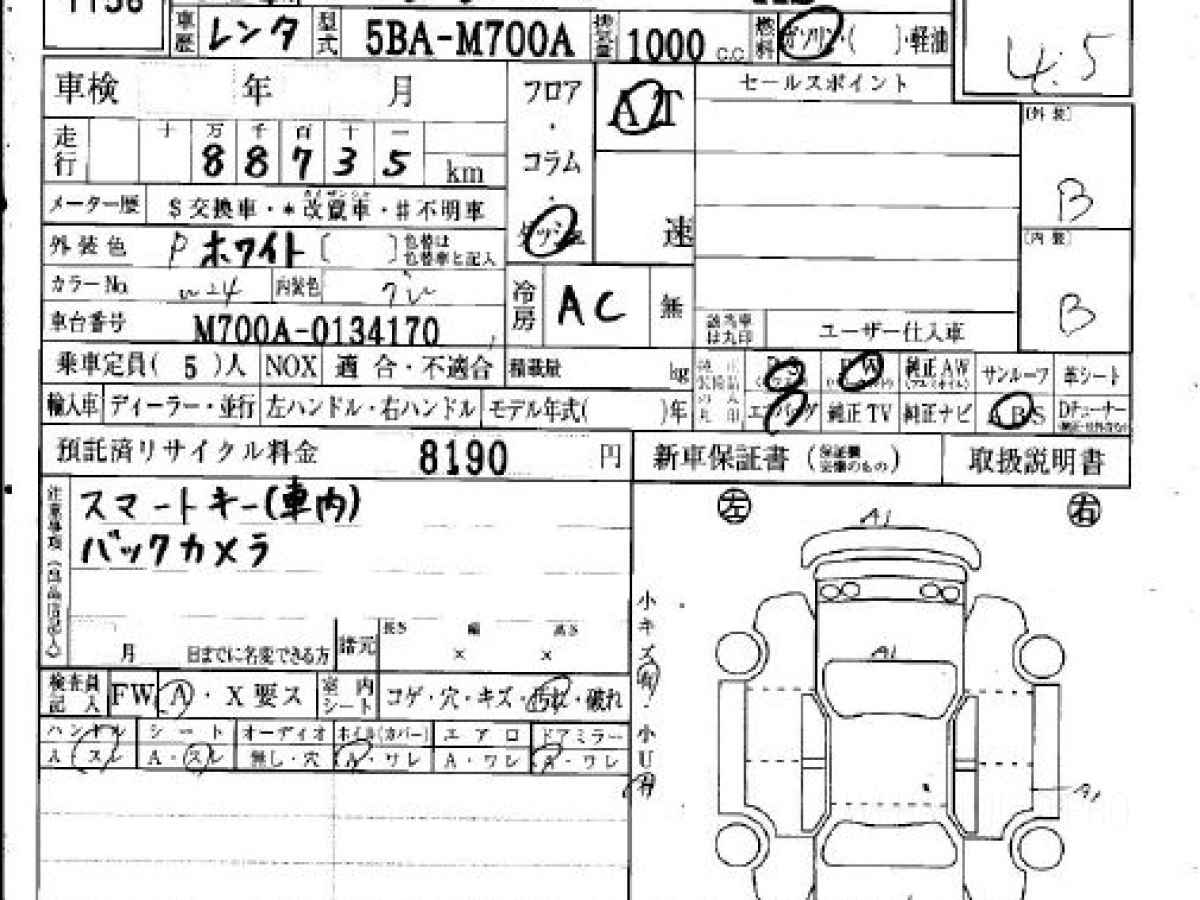 1156
車歴 レンタ 型式 5BA-M700A 排気量 1000 C.C. 燃料 ガソリン・( )・軽油
4.5
車検 年 月 フロア・コラム・ダッシュ AT 速 セールスポイント
[外装] B
走行 十 万 千 百 十 一
8 8 7 3 5 km
メーター歴 $交換車・*改竄車・#不明車
外装色 P ホワイト [ ] 色替は 色替車と記入
[内装] B
カラーNo. W24 内装色 グレー 冷房 AC 無
車台番号 M700A-0134170
該当車は丸印 ユーザー仕入車
乗車定員( 5 )人 NOX 適合・不適合 積載量 kg
PS PW 純正AW サンルーフ 革シート
輸入車 ディーラー・並行 左ハンドル・右ハンドル モデル年式( )年
エアバッグ 純正TV 純正ナビ ABS
預託済リサイクル料金 8190 円 新車保証書 (保証欄完備のもの) 取扱説明書
スマートキー(車内)
バックカメラ
左 右
A1
月 日までに名変できる方 諸元 長さ 幅 高さ
× ×
小キズ有・小U有
A1
検査員記入 FW A・X要ス 室内シート コゲ・穴・キズ・汚れ・破れ
ハンドル シート オーディオ ホイル(カバー) エアロ ドアミラー
A スレ A・スレ 無し・穴 A・ワレ A・ワレ A・ワレ
A1